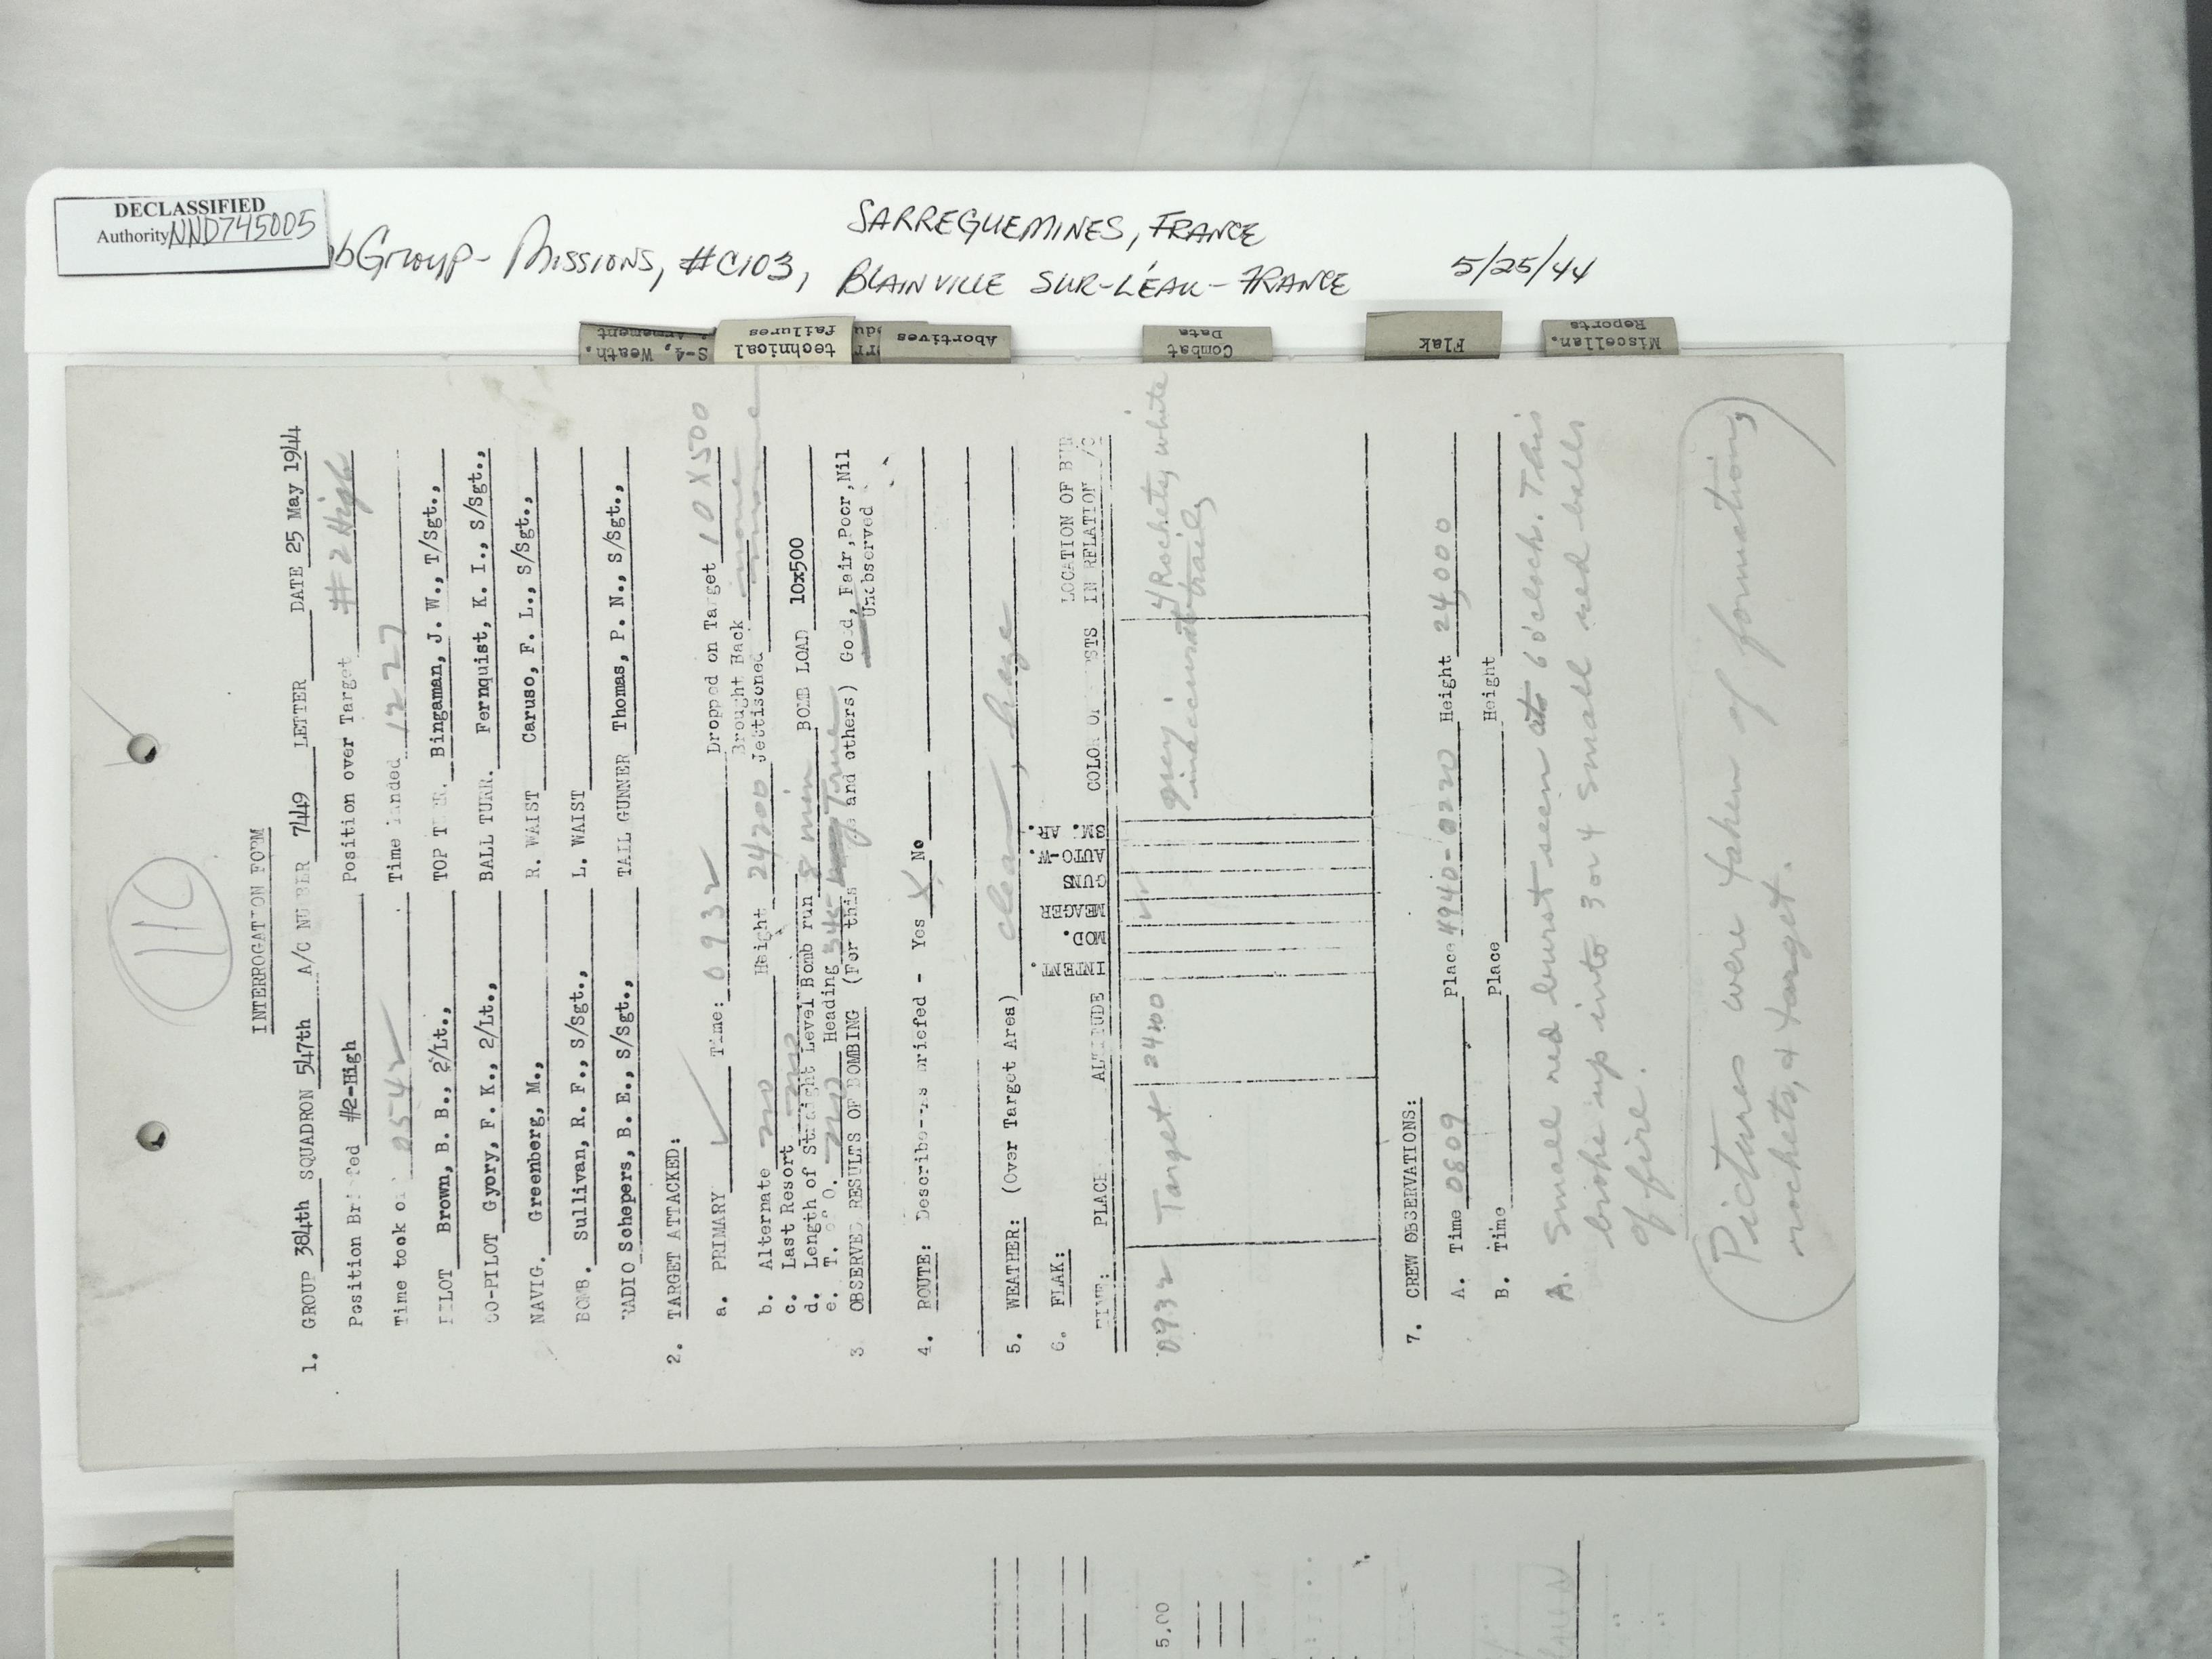 DECLASSIFIED
Authority NND745005
bGroup- Missions, #C103,
SARREGUEMINES, FRANCE
BLAINVILLE SUR-L'ÉAU- FRANCE
5/25/44
S-4, Weath.
Armament
technical
failures
Abortives
Combat
Data
Flak
Miscellan.
Reports
INTERROGATION FORM
1. GROUP 384th SQUADRON 547th A/C NUMBER 7449 LETTER DATE 25 May 1944
Position Briefed #2-High Position over Target #2 High
Time took off 0554 Time landed 1227
PILOT Brown, B. B., 2/Lt., TOP TURR. Bingaman, J. W., T/Sgt.,
CO-PILOT Gyory, F. K., 2/Lt., BALL TURR. Fernquist, K. I., S/Sgt.,
NAVIG. Greenberg, M., R. WAIST Caruso, F. L., S/Sgt.,
BOMB. Sullivan, R. F., S/Sgt., L. WAIST
RADIO Schepers, B. E., S/Sgt., TAIL GUNNER Thomas, P. N., S/Sgt.,
2. TARGET ATTACKED:
a. PRIMARY ✓ Time: 0932 Dropped on Target 10 X 500
Brought Back none
b. Alternate no Height 24200 Jettisoned none
c. Last Resort no
d. Length of Straight Level Bomb run 8 min BOMB LOAD 10x500
e. T. of O. no Heading 345 True
3 OBSERVED RESULTS OF BOMBING (For this and others) Good, Fair, Poor, Nil
Unobserved
4. ROUTE: Describe as briefed - Yes X No
5. WEATHER: (Over Target Area) clear, haze
6. FLAK:
TIME: PLACE ALTITUDE INTENT. MOD. MEAGER GUNS AUTO-W. SM. AR. COLOR OF BURSTS LOCATION OF BURSTS
IN RELATION A/C
0932 Target ✓ grey 4 Rockets, white
inaccurate trails
7. CREW OBSERVATIONS:
A. Time 0809 Place 4940-0220 Height 24,000
B. Time Place Height
A. Small red burst seen at 6 o'clock. This
broke up into 3 or 4 small red balls
of fire.
Pictures were taken of formation,
rockets, & target.
5.00